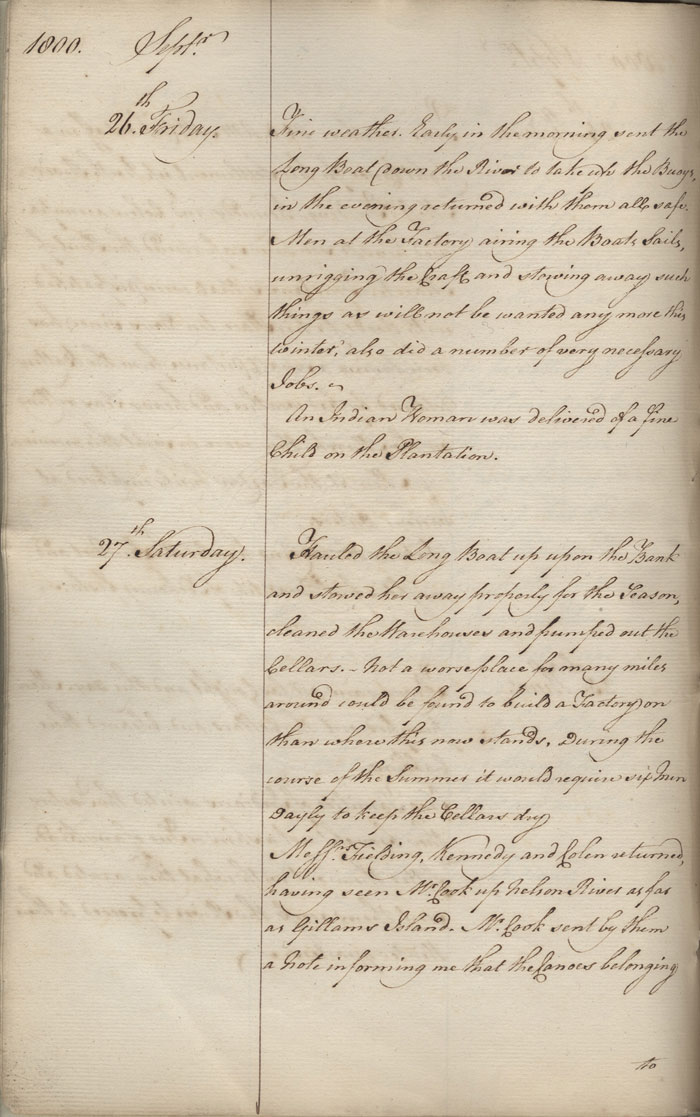 1800. Septr.
26.th Friday.
Fine weather. Early in the morning sent the
Long Boat down the River to take up the Buoys,
in the evening returned with them all safe.
Men at the Factory airing the Boats Sails,
unrigging the Craft and stowing away such
things as will not be wanted any more this
Winter, also did a number of very necessary
Jobs. ~
An Indian Woman was delivered of a fine
Child on the Plantation.
27.th Saturday.
Hauled the Long Boat up upon the Bank
and stowed her away properly for the Season,
cleaned the Warehouses and pumped out the
Cellars. – Not a worse place for many miles
around could be found to build a Factory on
than where this now stands. During the
course of the Summer it would require six Men
Dayly to keep the Cellars dry
Messrs. Fielding, Kennedy and Colen returned,
having seen Mr. Cook up Nelson River as far
as Gillams Island. Mr. Cook sent by them
a Note informing me that the Canoes belonging
to